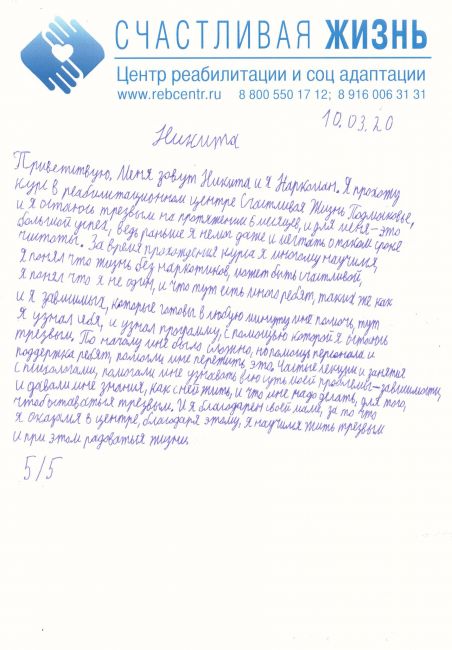 СЧАСТЛИВАЯ ЖИЗНЬ
Центр реабилитации и соц адаптации
www.rebcentr.ru 8 800 550 17 12; 8 916 006 31 31
10.03.20
Никита
Приветствую. Меня зовут Никита и я Наркоман. Я прохожу
курс в реабилитационном центре Счастливая Жизнь Подмосковье,
и я остаюсь трезвым на протяжении 6 месяцев, и для меня-это
большой успех, ведь раньше я не мог даже и мечтать о таком сроке
чистоты. За время прохождения курса я многому научился,
я понял что жизнь без наркотиков, может быть счастливой,
я понял что я не один, и что тут есть много ребят, таких же как
и я зависимых, которые готовы в любую минуту мне помочь, тут
я узнал себя, и узнал программу, с помощью которой я остаюсь
трезвым. По началу мне было сложно, но помощь персонала и
поддержка ребят, помогли мне пережить это. Частые лекции и занятия
с психологами, помогали мне узнавать всю суть моей проблемы-зависимости,
и давали мне знания, как с ней жить, и что мне надо делать, для того,
чтоб оставаться трезвым. И я благодарен своей маме, за то что
я оказался в центре, благодаря этому, я научился жить трезвым
и при этом радоваться жизни.
5/5